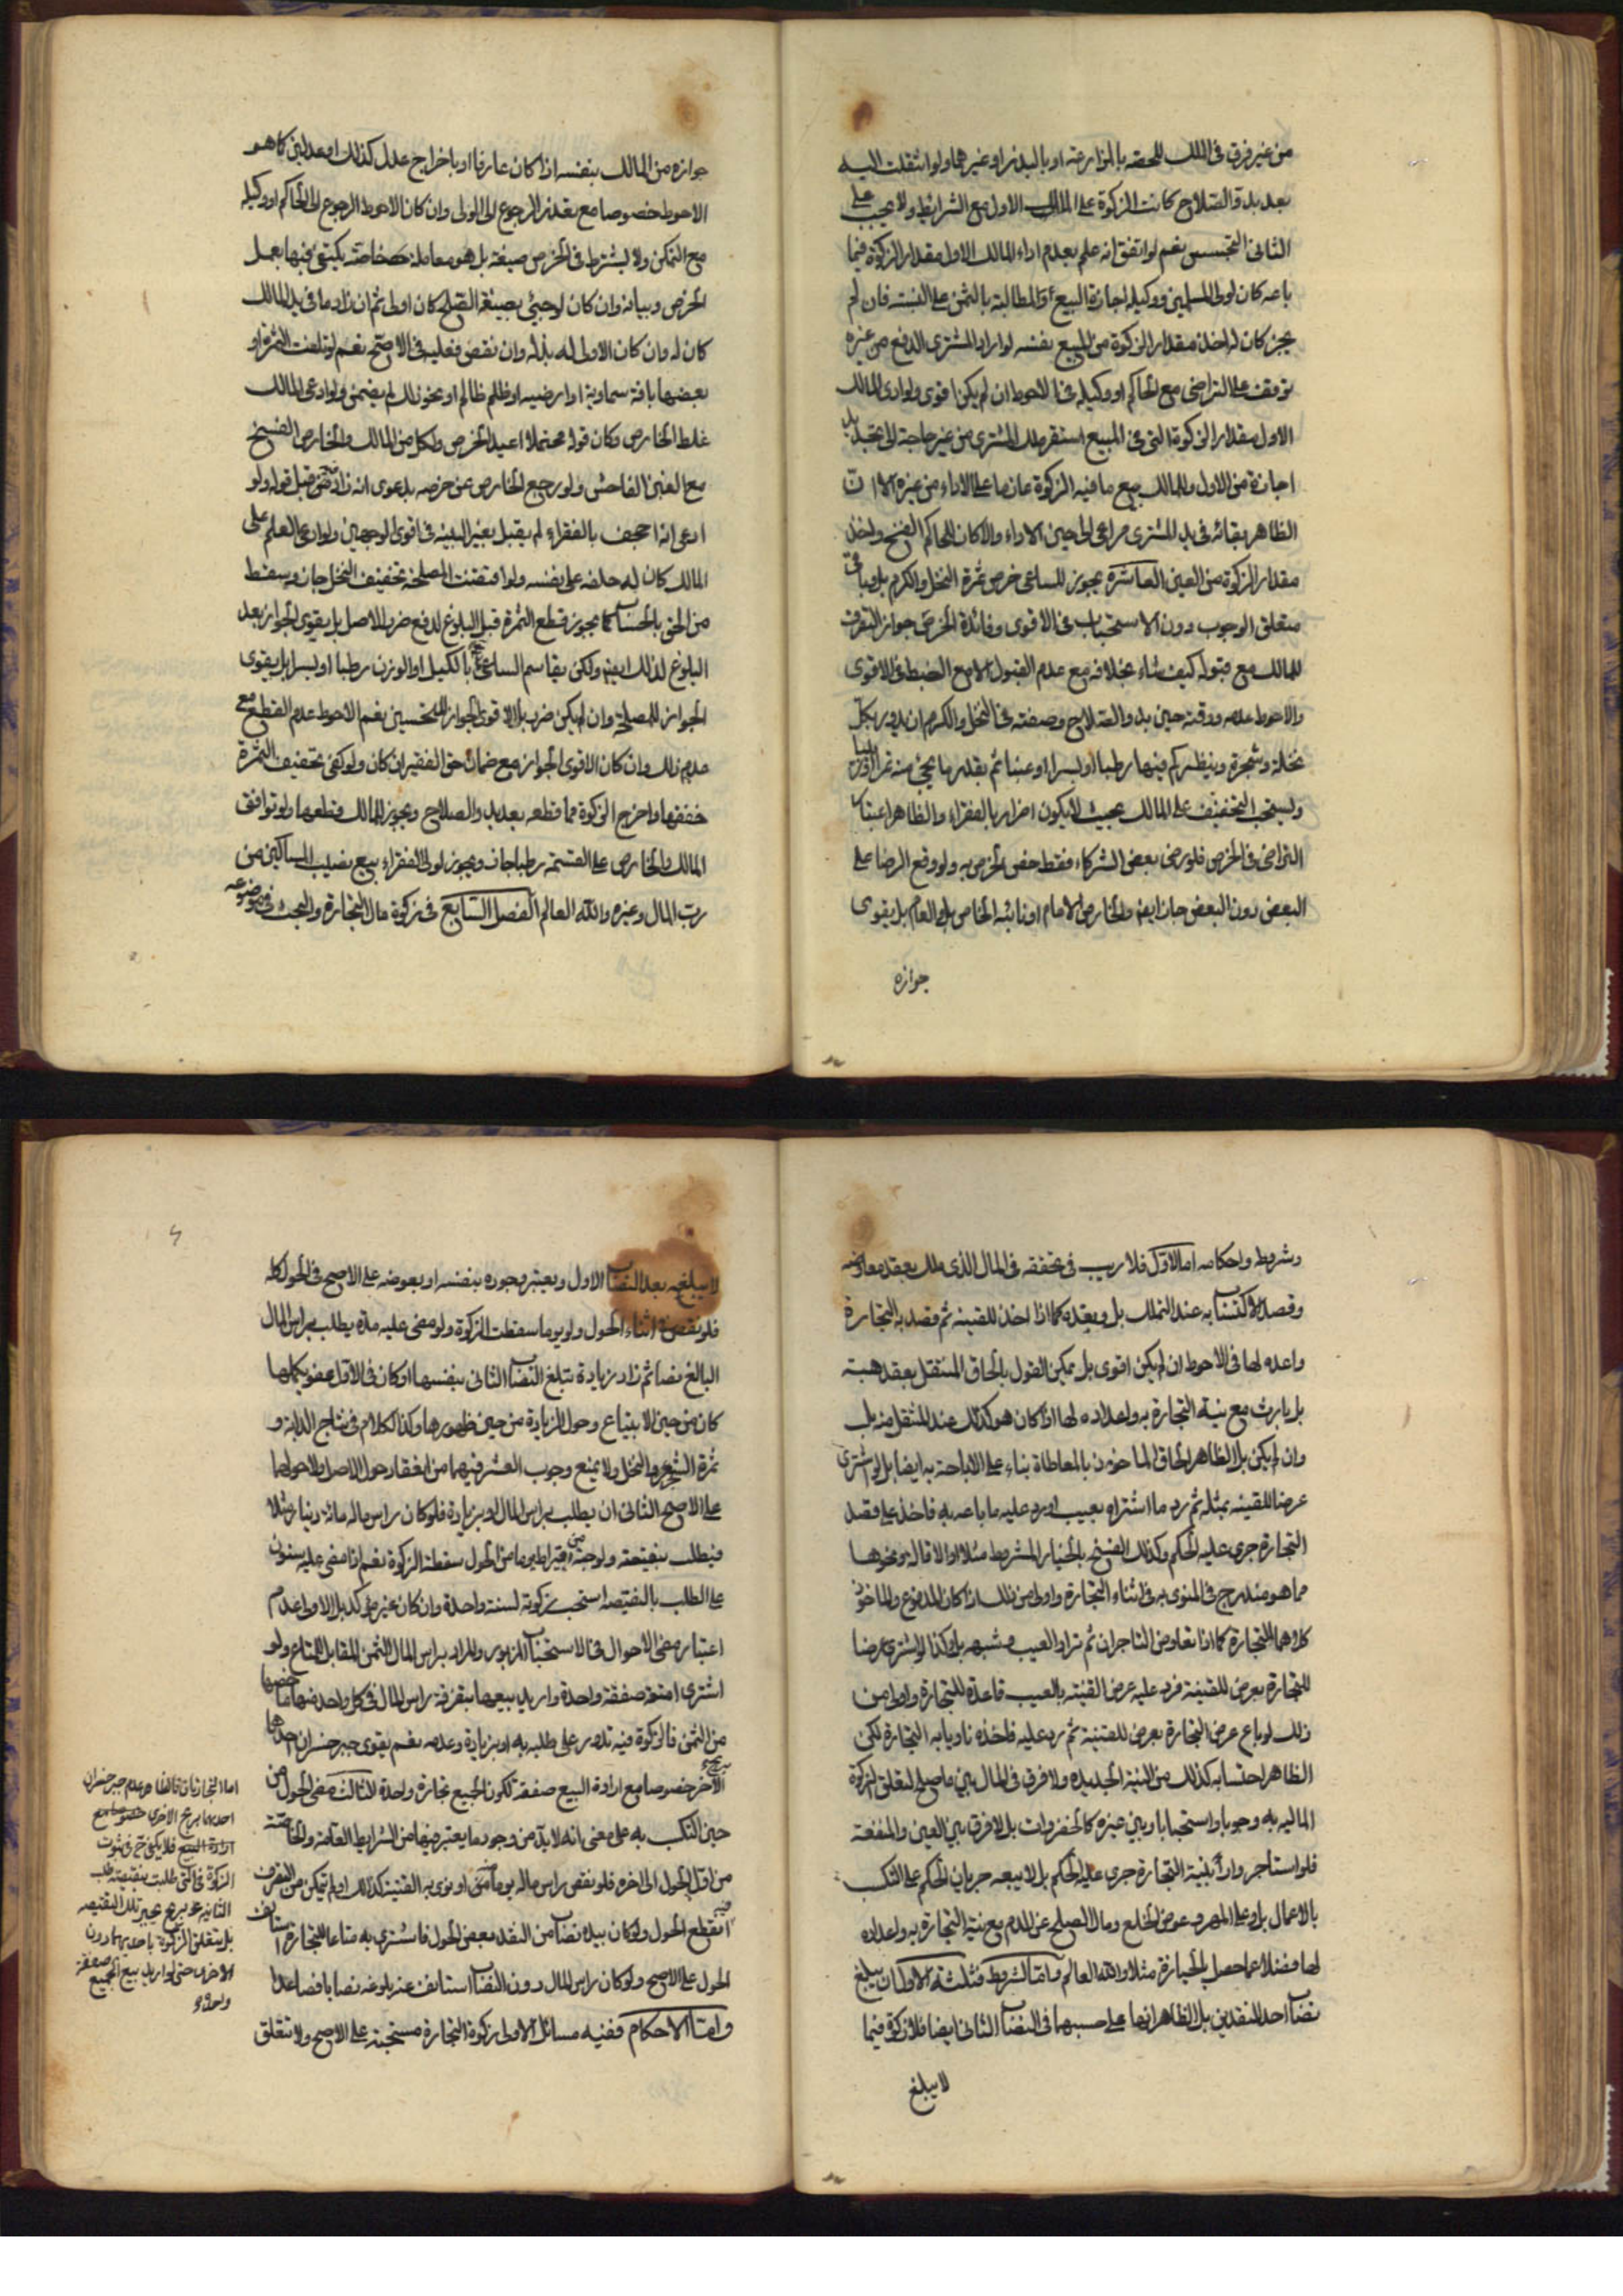 من غير فرق فى الملك للحصة بالمزارعة او بالبذر او غيرهما ولو انتقلت اليه
بعد بدو الصلاح كانت الزكوة على المالك الاول مع الشرايط ولا يجب على
الثانى التجسس نعم لو اتفق انه علم بعدم اداء المالك الاول مقدار الزكوة فيما
باعه كان لولى المسلمين ووكيله اجازة البيع والمطالبة بالثمن على النسبة فان لم
يجز كان له اخذ مقدار الزكوة من المبيع نفسه لو اراد المشترى الدفع من غيره
توقف على التراضى مع الحاكم او وكيله فى الاحوط ان لم يكن اقوى ولو ادى المالك
الاول مقدار الزكوة التى فى المبيع استقر ملك المشترى من غير حاجة الى تجديد
اجازة من الاول وللمالك بيع ما فيه الزكوة عازما على الاداء من غيره الا ان
الظاهر بقائه فى يد المشترى مراعى الى حين الاداء والا كان للحاكم الفسخ واخذ
مقدار الزكوة من العين العاشرة يجوز للساعى خرص ثمرة النخل والكرم بل وباقى
متعلق الوجوب دون الاستحباب فى الاقوى وفائدة الخرص جواز التصرف
للمالك مع قبوله كيف شاء بخلافه مع عدم القبول الا مع الضبط فى الاقوى
والاحوط عدمه ووقته حين بدو الصلاح وصفته فى النخل والكرم ان يدور بكل
نخلة وشجرة وينظر كم فيها رطبا او بسرا او عنبا ثم يقدر ما يجئ منه تمرا او زبيبا
ويستحب التخفيف على المالك بحيث لا يكون اضرار بالفقراء والظاهر اعتبار
التراضى فى الخرص فلو رضى بعض الشركاء فقط خص الخرص به ولو وقع الرضا على
البعض دون البعض جاز ايضا والخارص الامام او نائبه الخاص بل العام بل يقوى
جوازه
جوازه من المالك بنفسه اذا كان عارفا او باخراج عدل كذلك او عدلين كما هو
الاحوط خصوصا مع تعذر الرجوع الى الولى وان كان الاحوط الرجوع الى الحاكم او وكيله
مع التمكن ولا يشترط فى الخرص صيغة بل هو معاملة خاصة يكتفى فيها بعمل
الخرص وبيانه وان كان لو جيئ بصيغة الصلح كان اولى ثم ان زاد ما فى يد المالك
كان له وان كان الاولى له بذله وان نقص فعليه فى الاصح نعم لو تلفت الثمرة او
بعضها بافة سماوية او ارضية او ظلم ظالم او نحو ذلك لم يضمن ولو ادعى المالك
غلط الخارص وكان قوله محتملا اعيد الخرص ولكل من المالك والخارص الفسخ
مع الغبن الفاحش ولو رجع الخارص عن خرصه بدعوى انه زاد قبل قوله ولو
ادعى انه اجحف بالفقراء لم يقبل بغير البينة فى اقوى الوجهين ولو ادعى العلم على
المالك كان له حلفه على نفسه ولو اقتضت المصلحة تخفيف النخل جاز وسقط
من الحق بالحساب كما يجوز قطع الثمرة قبل البلوغ لدفع ضرر الاصل بل يقوى الجواز بعد
البلوغ لذلك ايضا ولكن يقاسم الساعى بالكيل او الوزن رطبا او بسرا بل يقوى
الجواز للمصلحة وان لم يكن ضرر بل الاقوى الجواز للتحسين نعم الاحوط عدم القطع مع
عدم ذلك وان كان الاقوى الجواز مع ضمان حق الفقير ان كان ولو كفى تخفيف الثمرة
خففها واخرج الزكوة مما قطعه بعد بدو الصلاح ويجوز للمالك قطعها ولو توافق
المالك والخارص على القسمة رطبا جاز ويجوز لولى الفقراء بيع نصيب المساكين من
رب المال وغيره والله العالم الفصل السابع فى زكوة مال التجارة والبحث فى موضوعه
وشروطه واحكامه اما الاول فلا ريب فى تحققه فى المال الذى ملك بعقد معاوضة
وقصد الاكتساب به عند التملك بل وبعده كما اذا اخذ للقنية ثم قصد به التجارة
واعده لها فى الاحوط ان لم يكن اقوى بل يمكن القول بالحاق المنتقل بعقد هبة
بل بارث مع نية التجارة به واعداده لها اذا كان هو كذلك عند المنتقل منه بل
وان لم يكن بل الظاهر الحاق الماخوذ بالمعاطاة بناء على الاباحة به ايضا بل لو اشترى
عرضا للقنية بمثله ثم رد ما اشتراه بعيب او رد عليه ما باعه به فاخذ على قصد
التجارة جرى عليه الحكم وكذلك الفسخ بالخيار المشروط مثلا او الاقالة ونحوها
مما هو مندرج فى المنوى به فى اثناء التجارة واولى من ذلك اذا كان المدفوع والماخوذ
كلاهما للتجارة كما اذا تعاوض التاجران ثم ترادا لعيب وشبهه بل وكذا لو اشترى عرضا
للتجارة بعرض للقنية فرد عليه عرض القنية بالعيب قاعدة للتجارة واولى من
ذلك لو باع عرض التجارة بعرض للقنية ثم رد عليه فاخذه ناويا به التجارة لكن
الظاهر احتسابه كذلك من النية الجديدة ولا فرق فى المال بين ما صلح لتعلق الزكوة
المالية به وجوبا واستحبابا وبين غيره كالخضروات بل لا فرق بين العين والمنفعة
فلو استأجر دارا بنية التجارة جرى عليه الحكم بل لا يبعد جريان الحكم على التكسب
بالاعمال بل وعلى المهر وعوض الخلع ومال الصلح عن الدم مع نية التجارة به واعداده
لها فضلا عما حصل بالحيازة مثلا والله العالم واما الشروط فثلثة الاول ان يبلغ
نصاب احد النقدين بل الظاهر انها على حسبهما فى النصاب الثانى ايضا فلا زكوة فيما
لا يبلغ
لا يبلغه بعد النصاب الاول ويعتبر وجوده بنفسه او بعوضه على الاصح فى الحول كله
فلو نقص فى اثناء الحول ولو يوما سقطت الزكوة ولو مضى عليه مدة يطلب براس المال
البالغ نصابا ثم زاد زيادة تبلغ النصاب الثانى بنفسها او كان فى الاول عفو يكملها
كان من حين الابتياع وحول الزيادة من حين ظهورها وكذا الكلام فى نتاج الدابة و
ثمرة الشجر والنخل ولا يمنع وجوب العشر فيهما من انعقاد حول الاصل ولا حولهما
على الاصح الثانى ان يطلب براس المال او بزيادة فلو كان راس ماله مائة دينار مثلا
فيطلب بنقيصة ولو حبة من قيراط يوما من الحول سقطت الزكوة نعم اذا مضى عليه سنون
على الطلب بالنقيصة استحب زكوته لسنة واحدة وان كان غير مؤكد بل الاولى عدم
اعتبار مضى الاحوال فى الاستحباب المزبور والمراد براس المال الثمن المقابل للمتاع ولو
اشترى امتعة صفقة واحدة واريد بيعها بتفرقة راس المال فى كل واحد منها ما خصها
من الثمن فالزكوة فيه تدور على طلبه به او بزيادة وعدمه نعم يقوى جبر خسران احدها
بربح الاخر خصوصا مع ارادة البيع صفقة لكون الجميع تجارة واحدة الثالث مضى الحول من
حين التكسب به على معنى انه لا بد من وجود ما يعتبر فيها من الشرايط العامة والخاصة
من اول الحول الى اخره فلو نقص راس ماله يوما منه او نوى به القنية كذلك او لم يتمكن من التصرف فيه
انقطع الحول ولو كان بيده نصاب من النقد بعض الحول فاشترى به متاعا للتجارة استانف
الحول على الاصح ولو كان راس المال دون النصاب استانف عند بلوغه نصابا فصاعدا
واما الاحكام ففيه مسائل الاولى زكوة التجارة مستحبة على الاصح ولا تتعلق
اما التجارتان فالظاهر عدم جبر خسران
احديهما بربح الاخرى خصوصا مع
ارادة البيع فلا يكفى ح فى ثبوت
الزكوة فى التى طلبت بنقيصة طلب
الثانية بربح يجبر تلك النقيصة
بل تتعلق الزكوة باحديهما دون
الاخرى حتى لو اريد بيع الجميع صفقة
واحدة